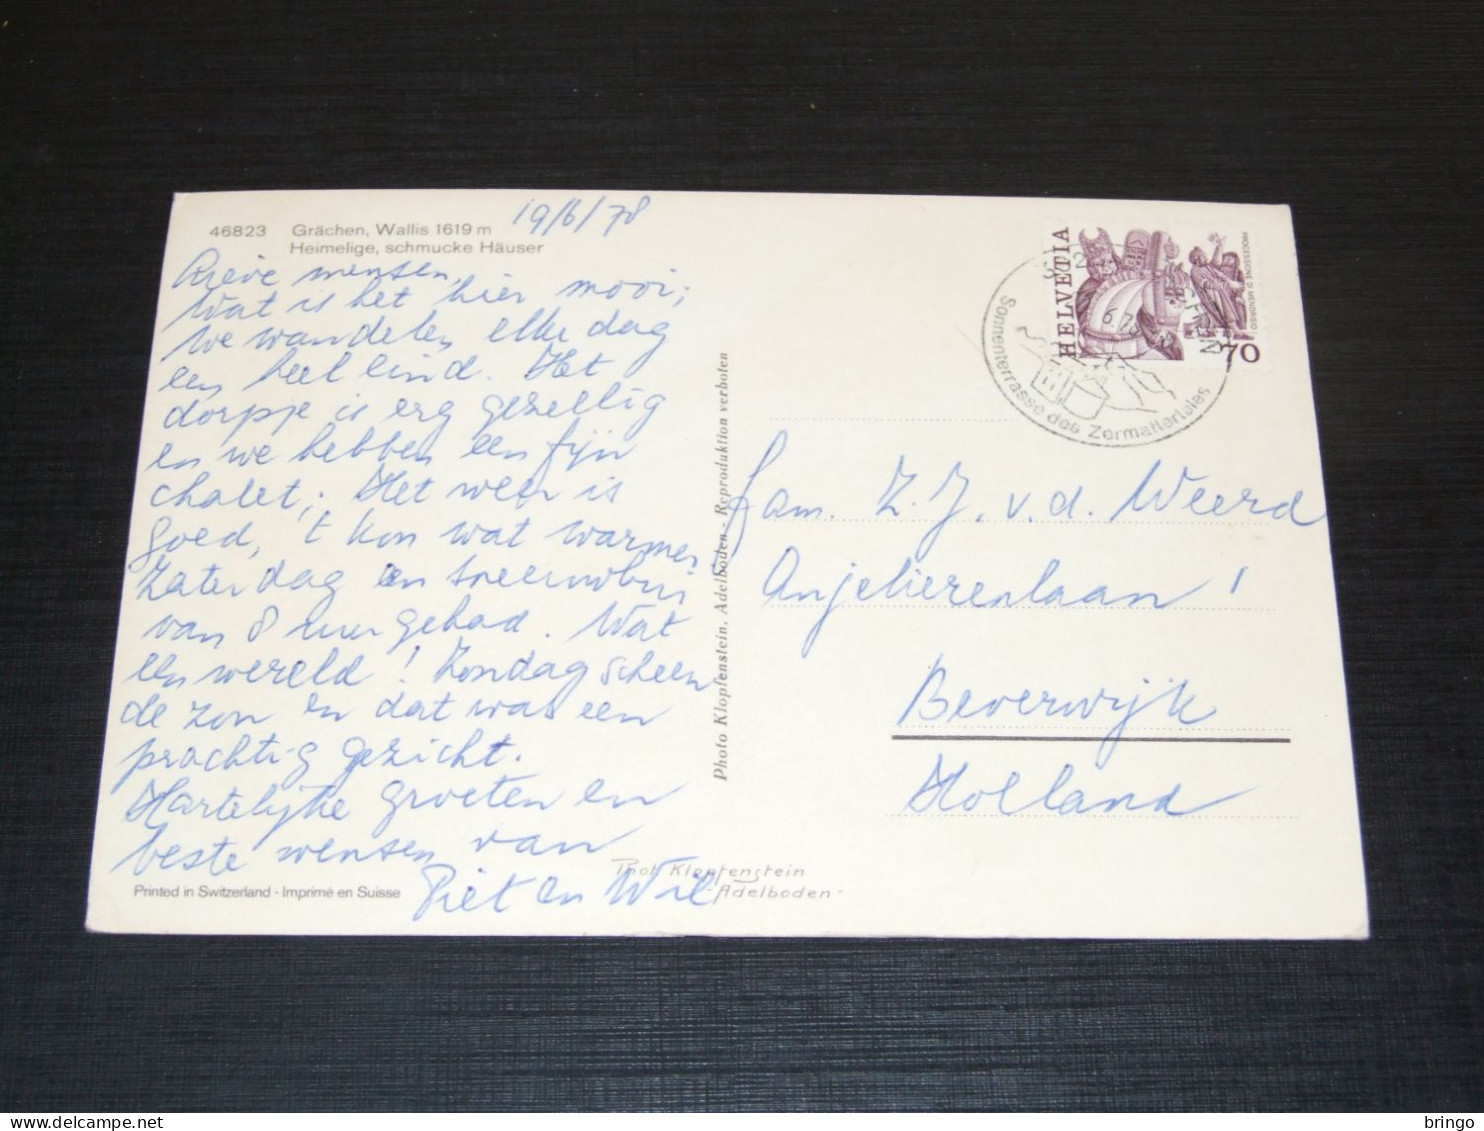 46823 Grächen, Wallis 1619 m
Heimelige, schmucke Häuser
19/6/78
Lieve mensen,
Wat is het hier mooi;
we wandelen elke dag
een heel eind. Het
dorpje is erg gezellig
en we hebben een fijn
chalet; Het weer is
goed, 't kon wat warmer,
Zaterdag een sneeuwbui
van 8 uur gehad. Wat
een wereld! Zondag scheen
de zon en dat was een
prachtig gezicht.
Hartelijke groeten en
beste wensen van
Piet en Wil
Printed in Switzerland - Imprimé en Suisse
Phot. Klopfenstein
Adelboden
Photo Klopfenstein, Adelboden - Reproduktion verboten
HELVETIA
PROCESSIONE DI MENDRISIO
70
Sonnenterrasse des Zermattertales
Fam. Z. J. v. d. Weerd
Anjelierenlaan 1
Beverwijk
Holland
bringo